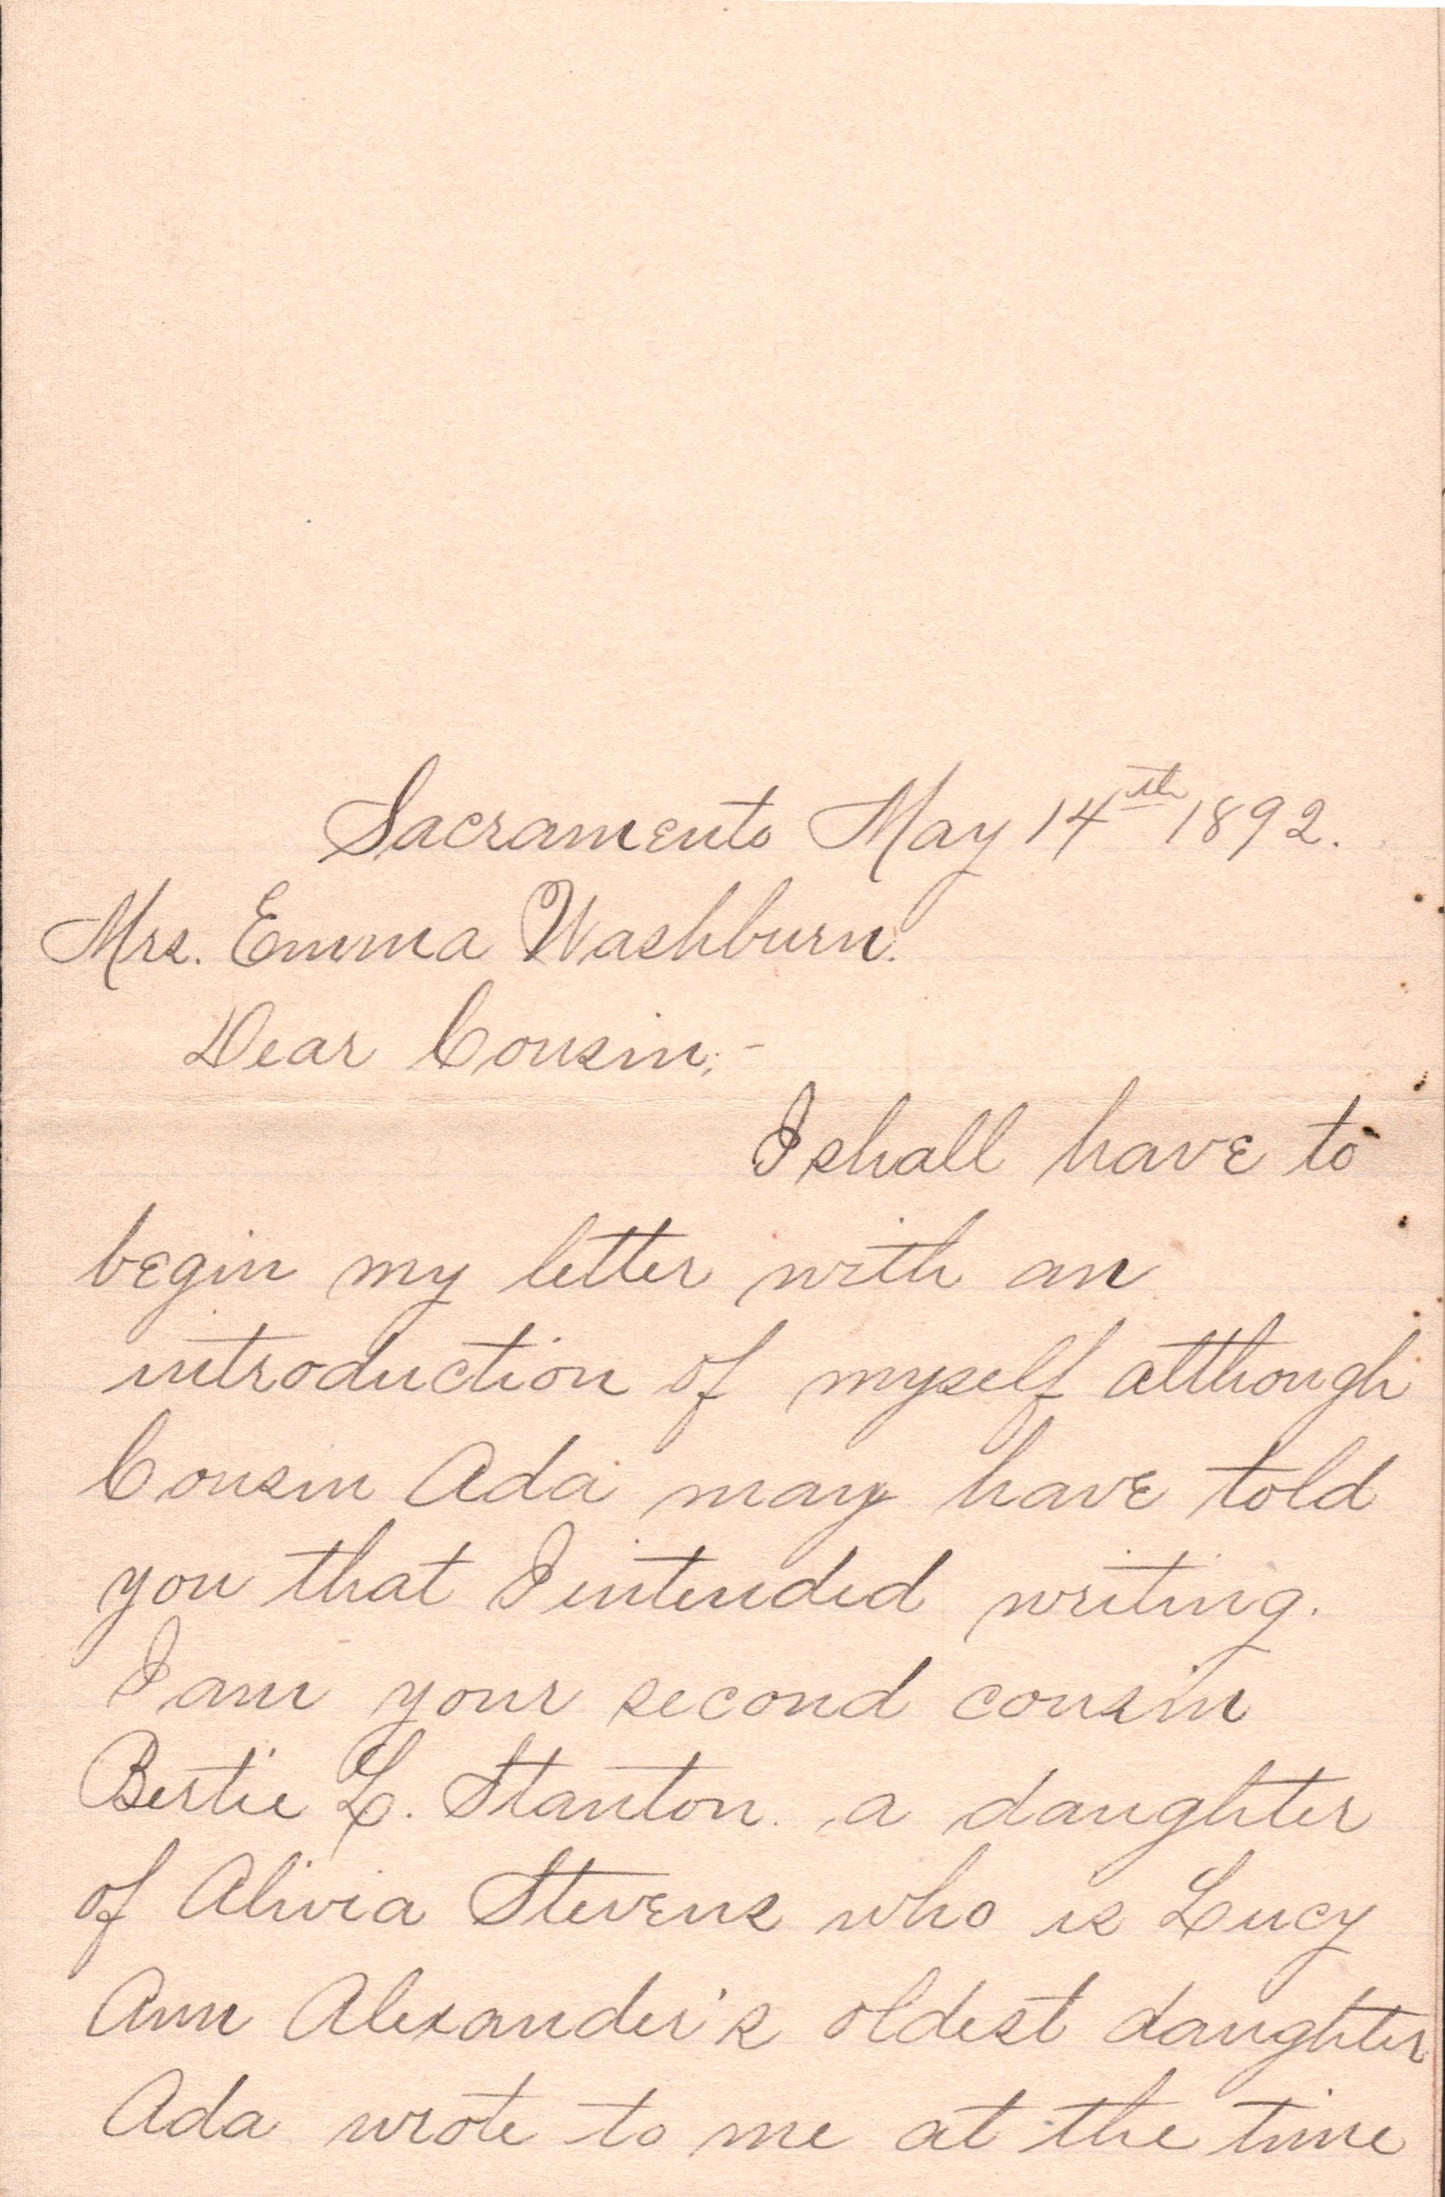 Sacramento May 14th 1892.
Mrs. Emma Washburn.
Dear Cousin; -
I shall have to
begin my letter with an
introduction of myself although
Cousin Ada may have told
you that I intended writing.
I am your second cousin
Bertie L. Stanton. , a daughter
of Alivia Stevens who is Lucy
Ann Alexander's oldest daughter
Ada wrote to me at the time